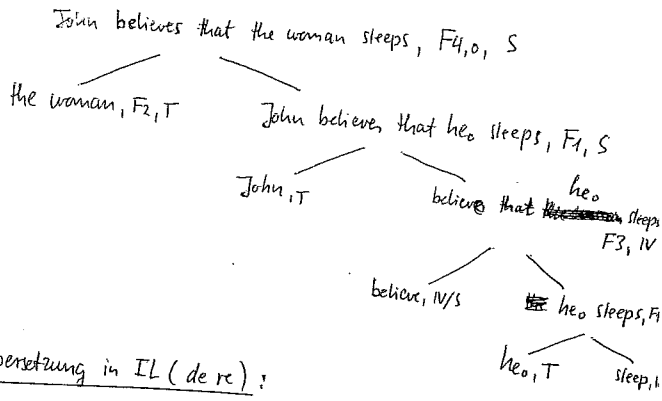 John believes that the woman sleeps, F4,0, S
the woman, F2, T
John believes that he₀ sleeps, F1, S
John, T
he₀
believe that sleeps
F3, IV
believe, IV/S
he₀ sleeps, F1
he₀, T
sleep, I
bersetzung in IL (de re):